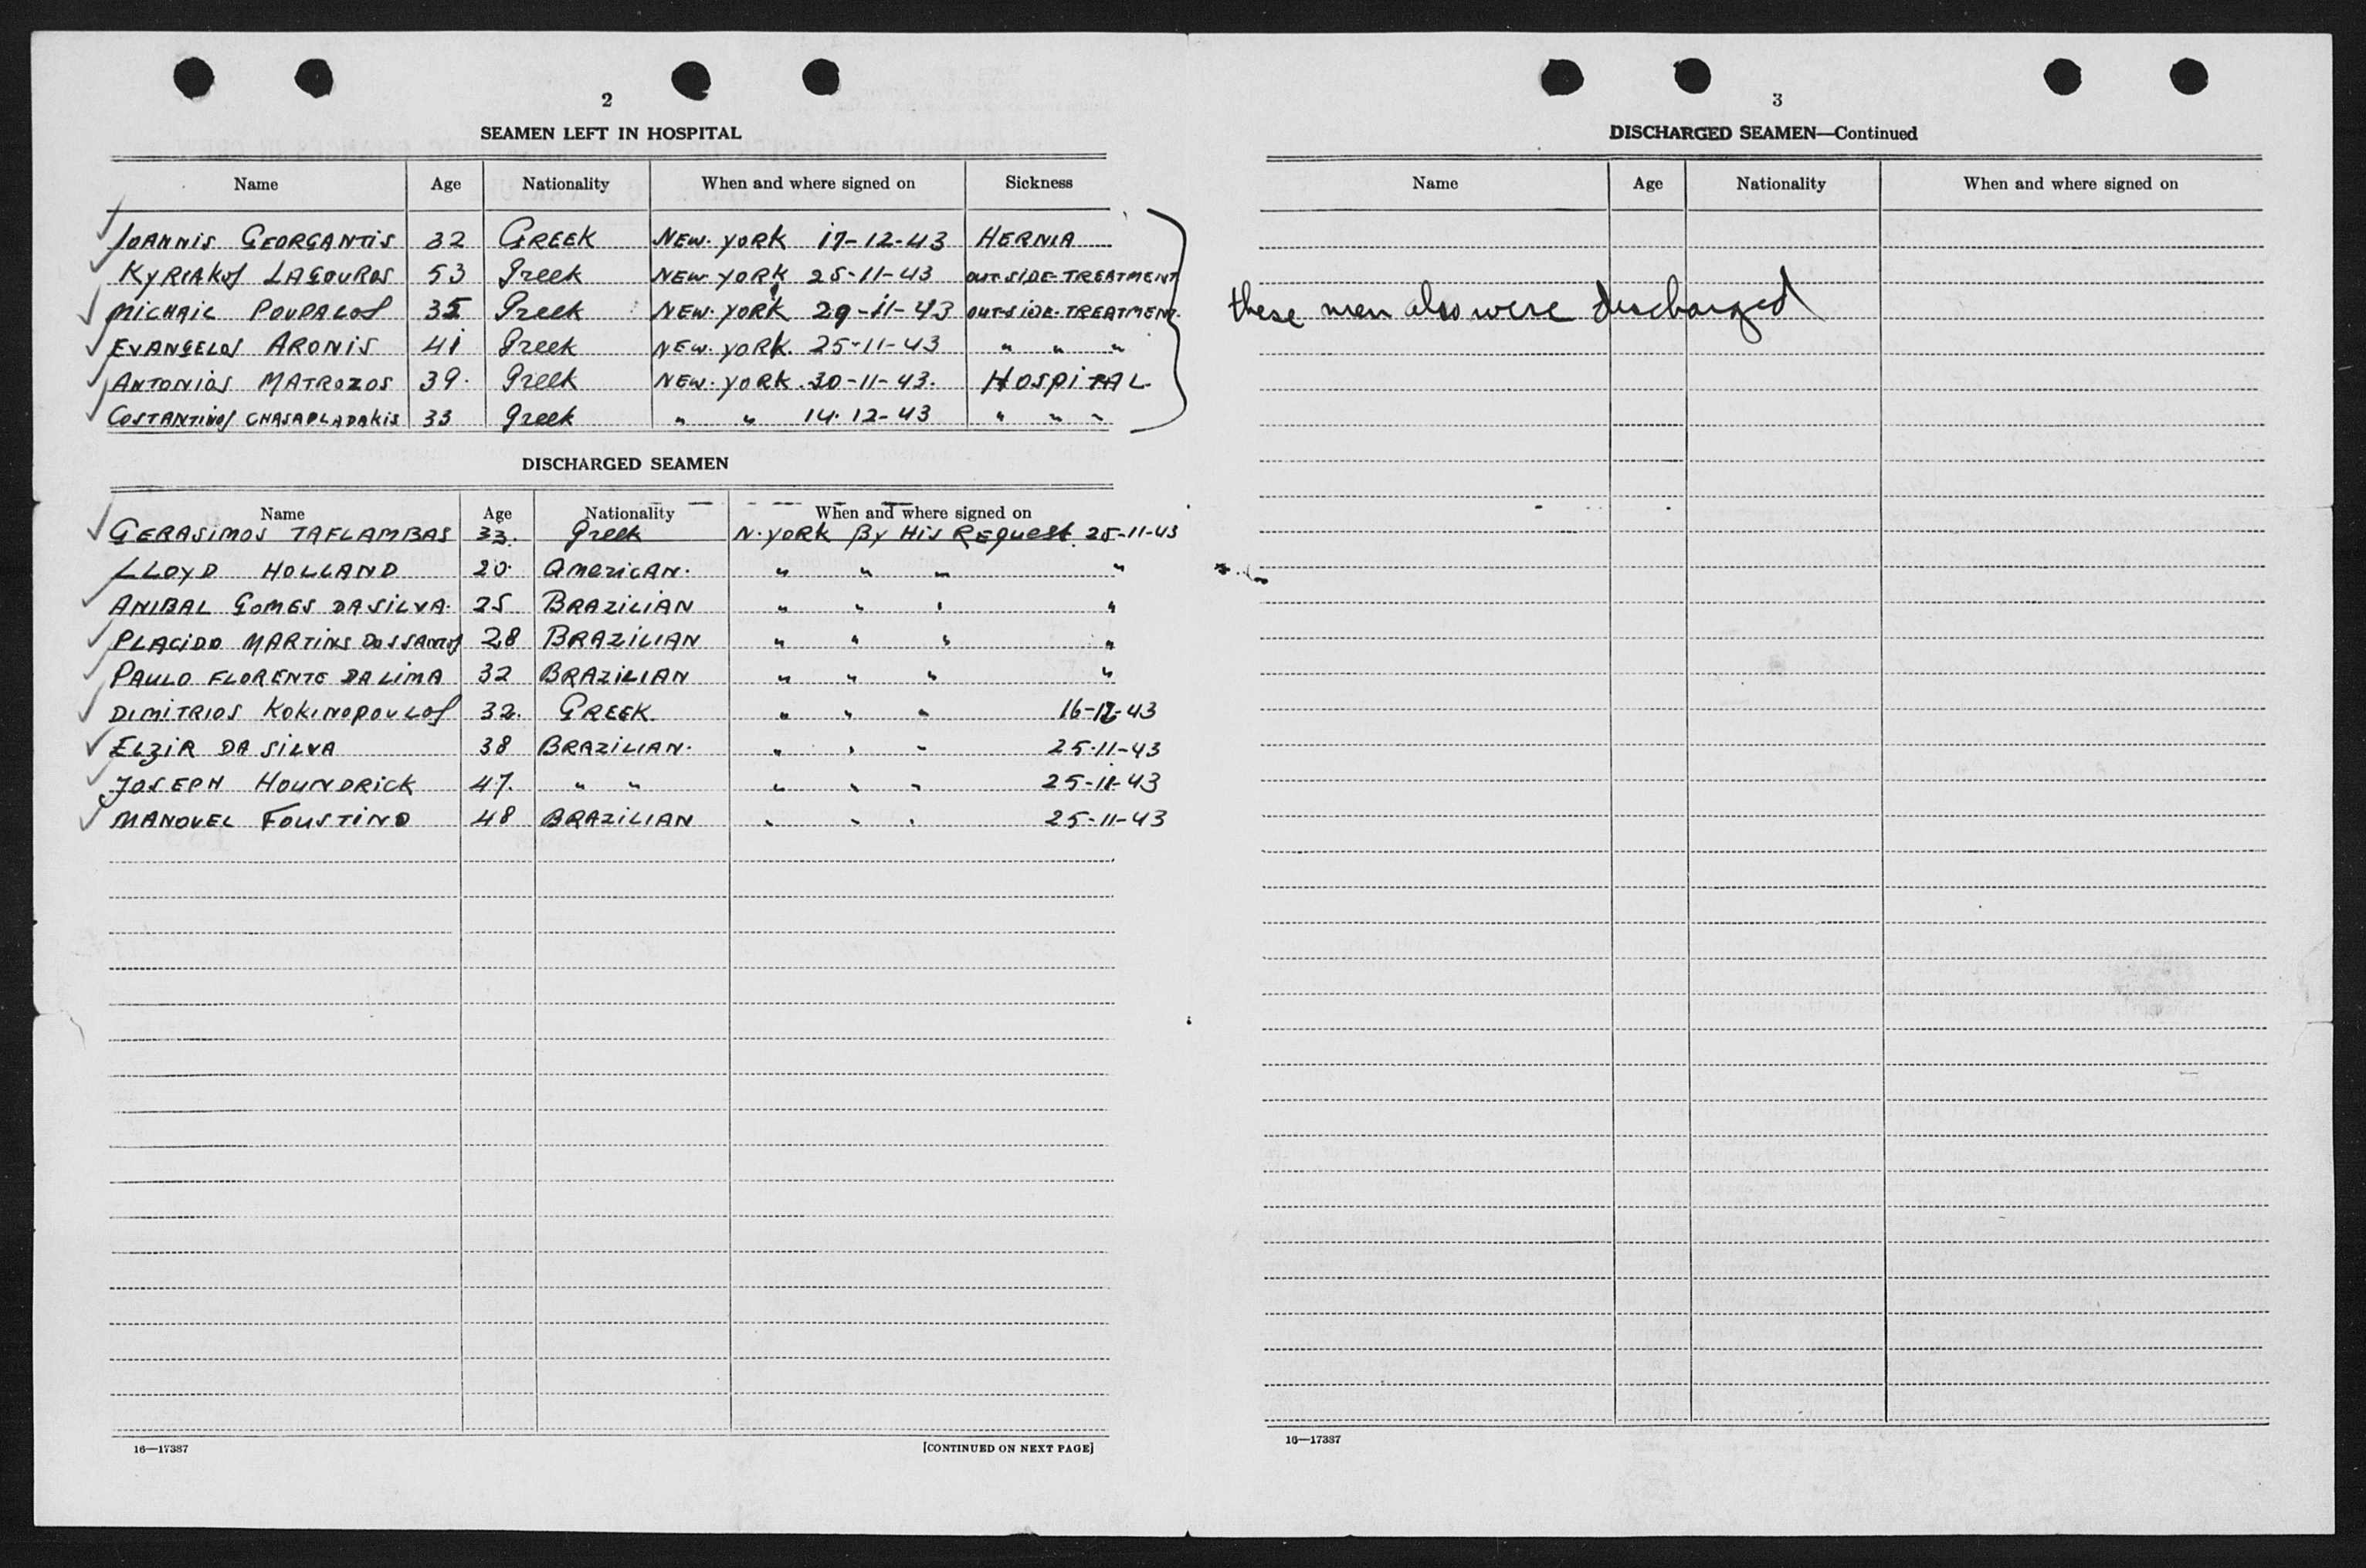 2
SEAMEN LEFT IN HOSPITAL
Name Age Nationality When and where signed on Sickness
IOANNIS GEORGANTIS 32 GREEK NEW. YORK 17-12-43 HERNIA
KYRIAKOS LAGOUROS 53 Greek NEW YORK 25-11-43 OUT-SIDE-TREATMENT
MICHAIL POUPALOS 35 Greek NEW. YORK 29-11-43 OUT-SIDE-TREATMENT.
EVANGELOS ARONIS 41 Greek NEW. YORK. 25-11-43 " " "
ANTONIOS MATROZOS 39. Greek NEW. YORK. 30-11-43. HOSPITAL.
COSTANTINOS CHASAPLADAKIS 33 Greek " " 14.12-43 " " "
DISCHARGED SEAMEN
Name Age Nationality When and where signed on
GERASIMOS TAFLAMBAS 33. Greek N. YORK By His REquest. 25-11-43
LLOYD HOLLAND 20. AmericAN. " " " "
ANIBAL GOMES DA SILVA. 25 BRAZILIAN " " " "
PLACIDO MARTINS DOS SANTOS 28 BRAZILIAN " " " "
PAULO FLORENTE DA LIMA 32 BRAZILIAN " " " "
DIMITRIOS KOKINOPOULOS 32. GREEK. " " " 16-12-43
ELZIR DA SILVA 38 BRAZILIAN. " " " 25-11-43
JOSEPH HOUNDRICK 47. " " " " " 25-11-43
MANOUEL FOUSTINO 48 BRAZILIAN " " " 25-11-43
16—17387 [CONTINUED ON NEXT PAGE]
3
DISCHARGED SEAMEN—Continued
Name Age Nationality When and where signed on
these men also were discharged
16—17387